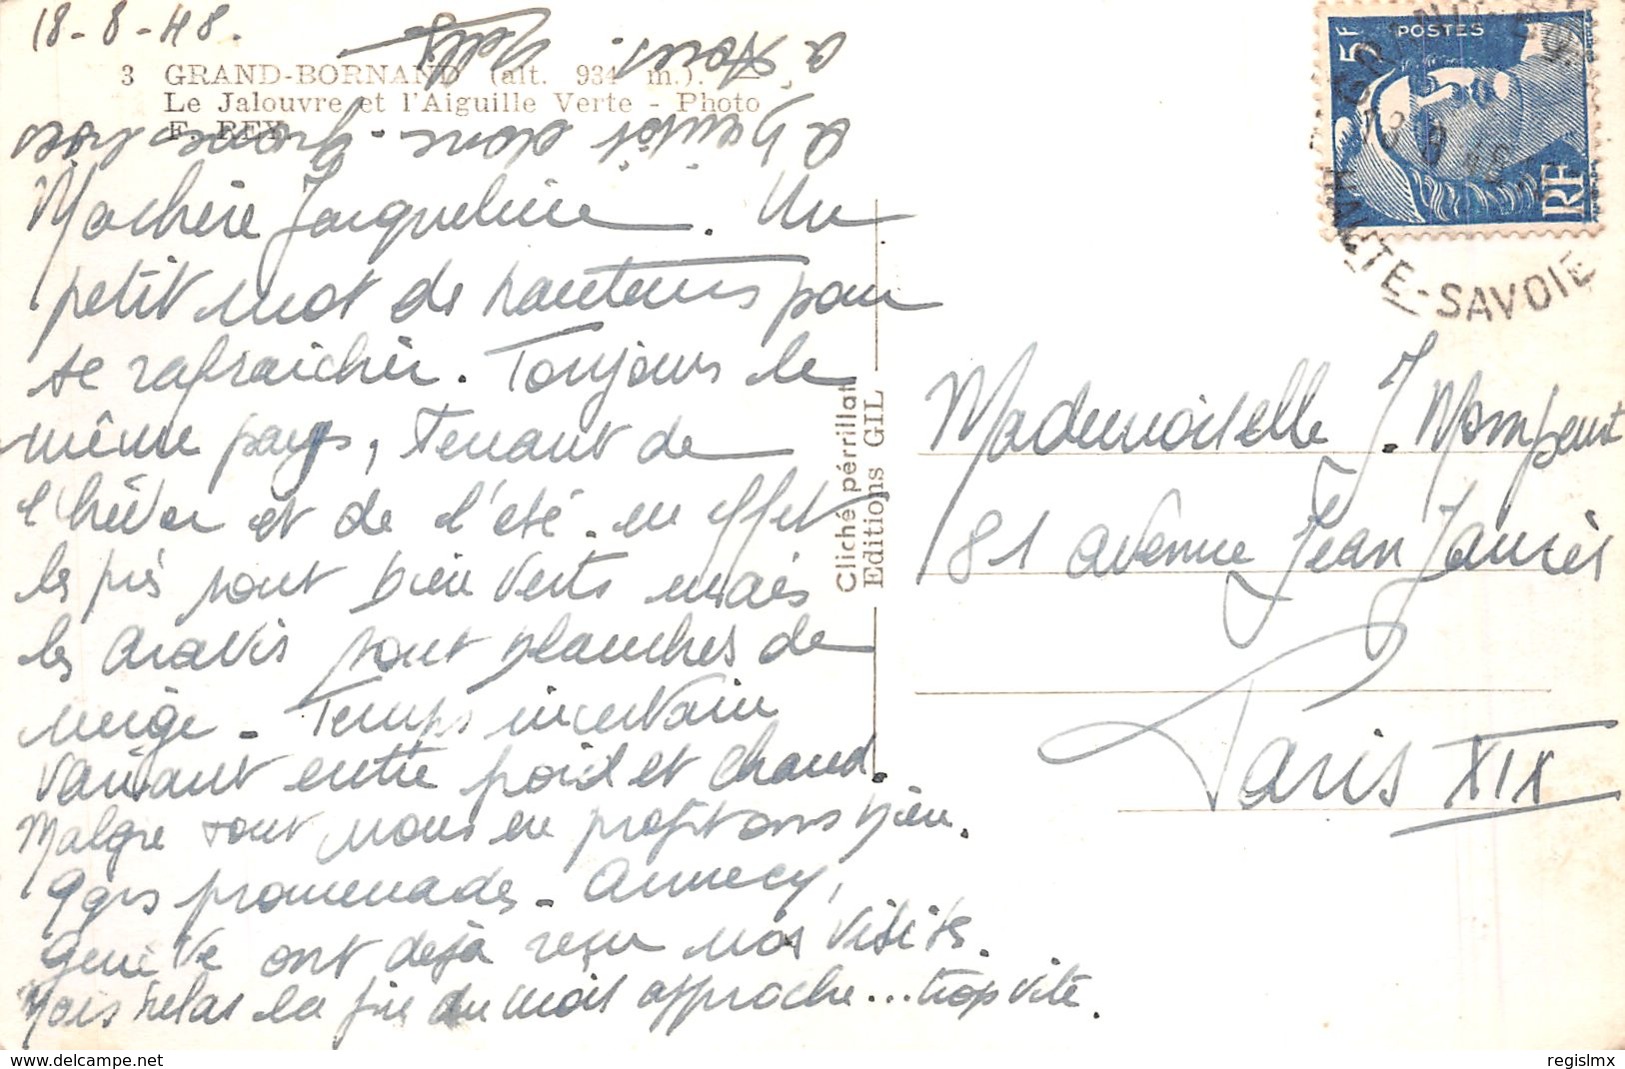 18-8-48.
3 GRAND-BORNAND (alt. 934 m.). —
Le Jalouvre et l'Aiguille Verte - Photo
F. REY.
Ma chère Jacqueline. Un
petit mot de hauteurs pour
se rafraichir. Toujours le
même pays, Tenant de
l'hiver et de l'été. en effet
les prés sont bien verts mais
les Aravis sont blanches de
neige - Temps incertain
variant entre froid et chaud.
Malgré tout nous en profitons bien.
qqes promenades - Annecy,
Genève ont déjà reçu nos visites.
Mais hélas la fin du mois approche... trop vite.
a bientôt donc - Bonnes
a tous.
Cliché périllat
Editions GIL
POSTES
5F
RF
18 8 48
HAUTE-SAVOIE
Mademoiselle J. Mompeut
81 avenue Jean Jaurès
Paris XIX
regislmx